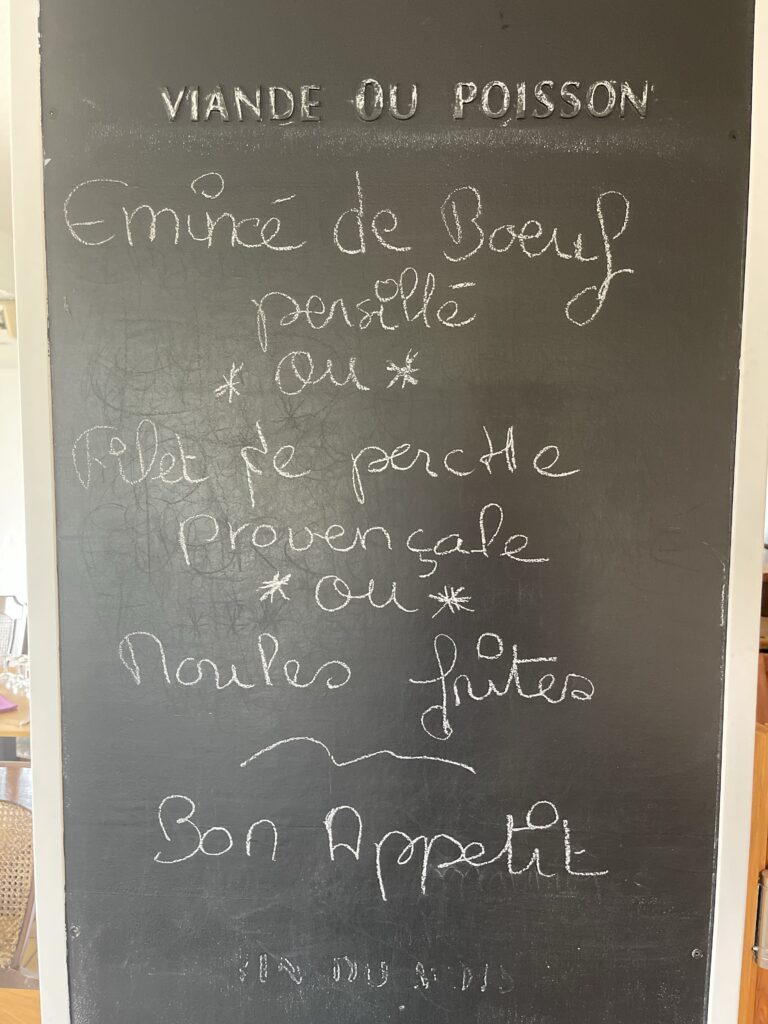 VIANDE OU POISSON
Emincé de Boeuf
persillé
* ou *
Filet de percHe
Provençale
* ou *
Moules frites
Bon Appetit